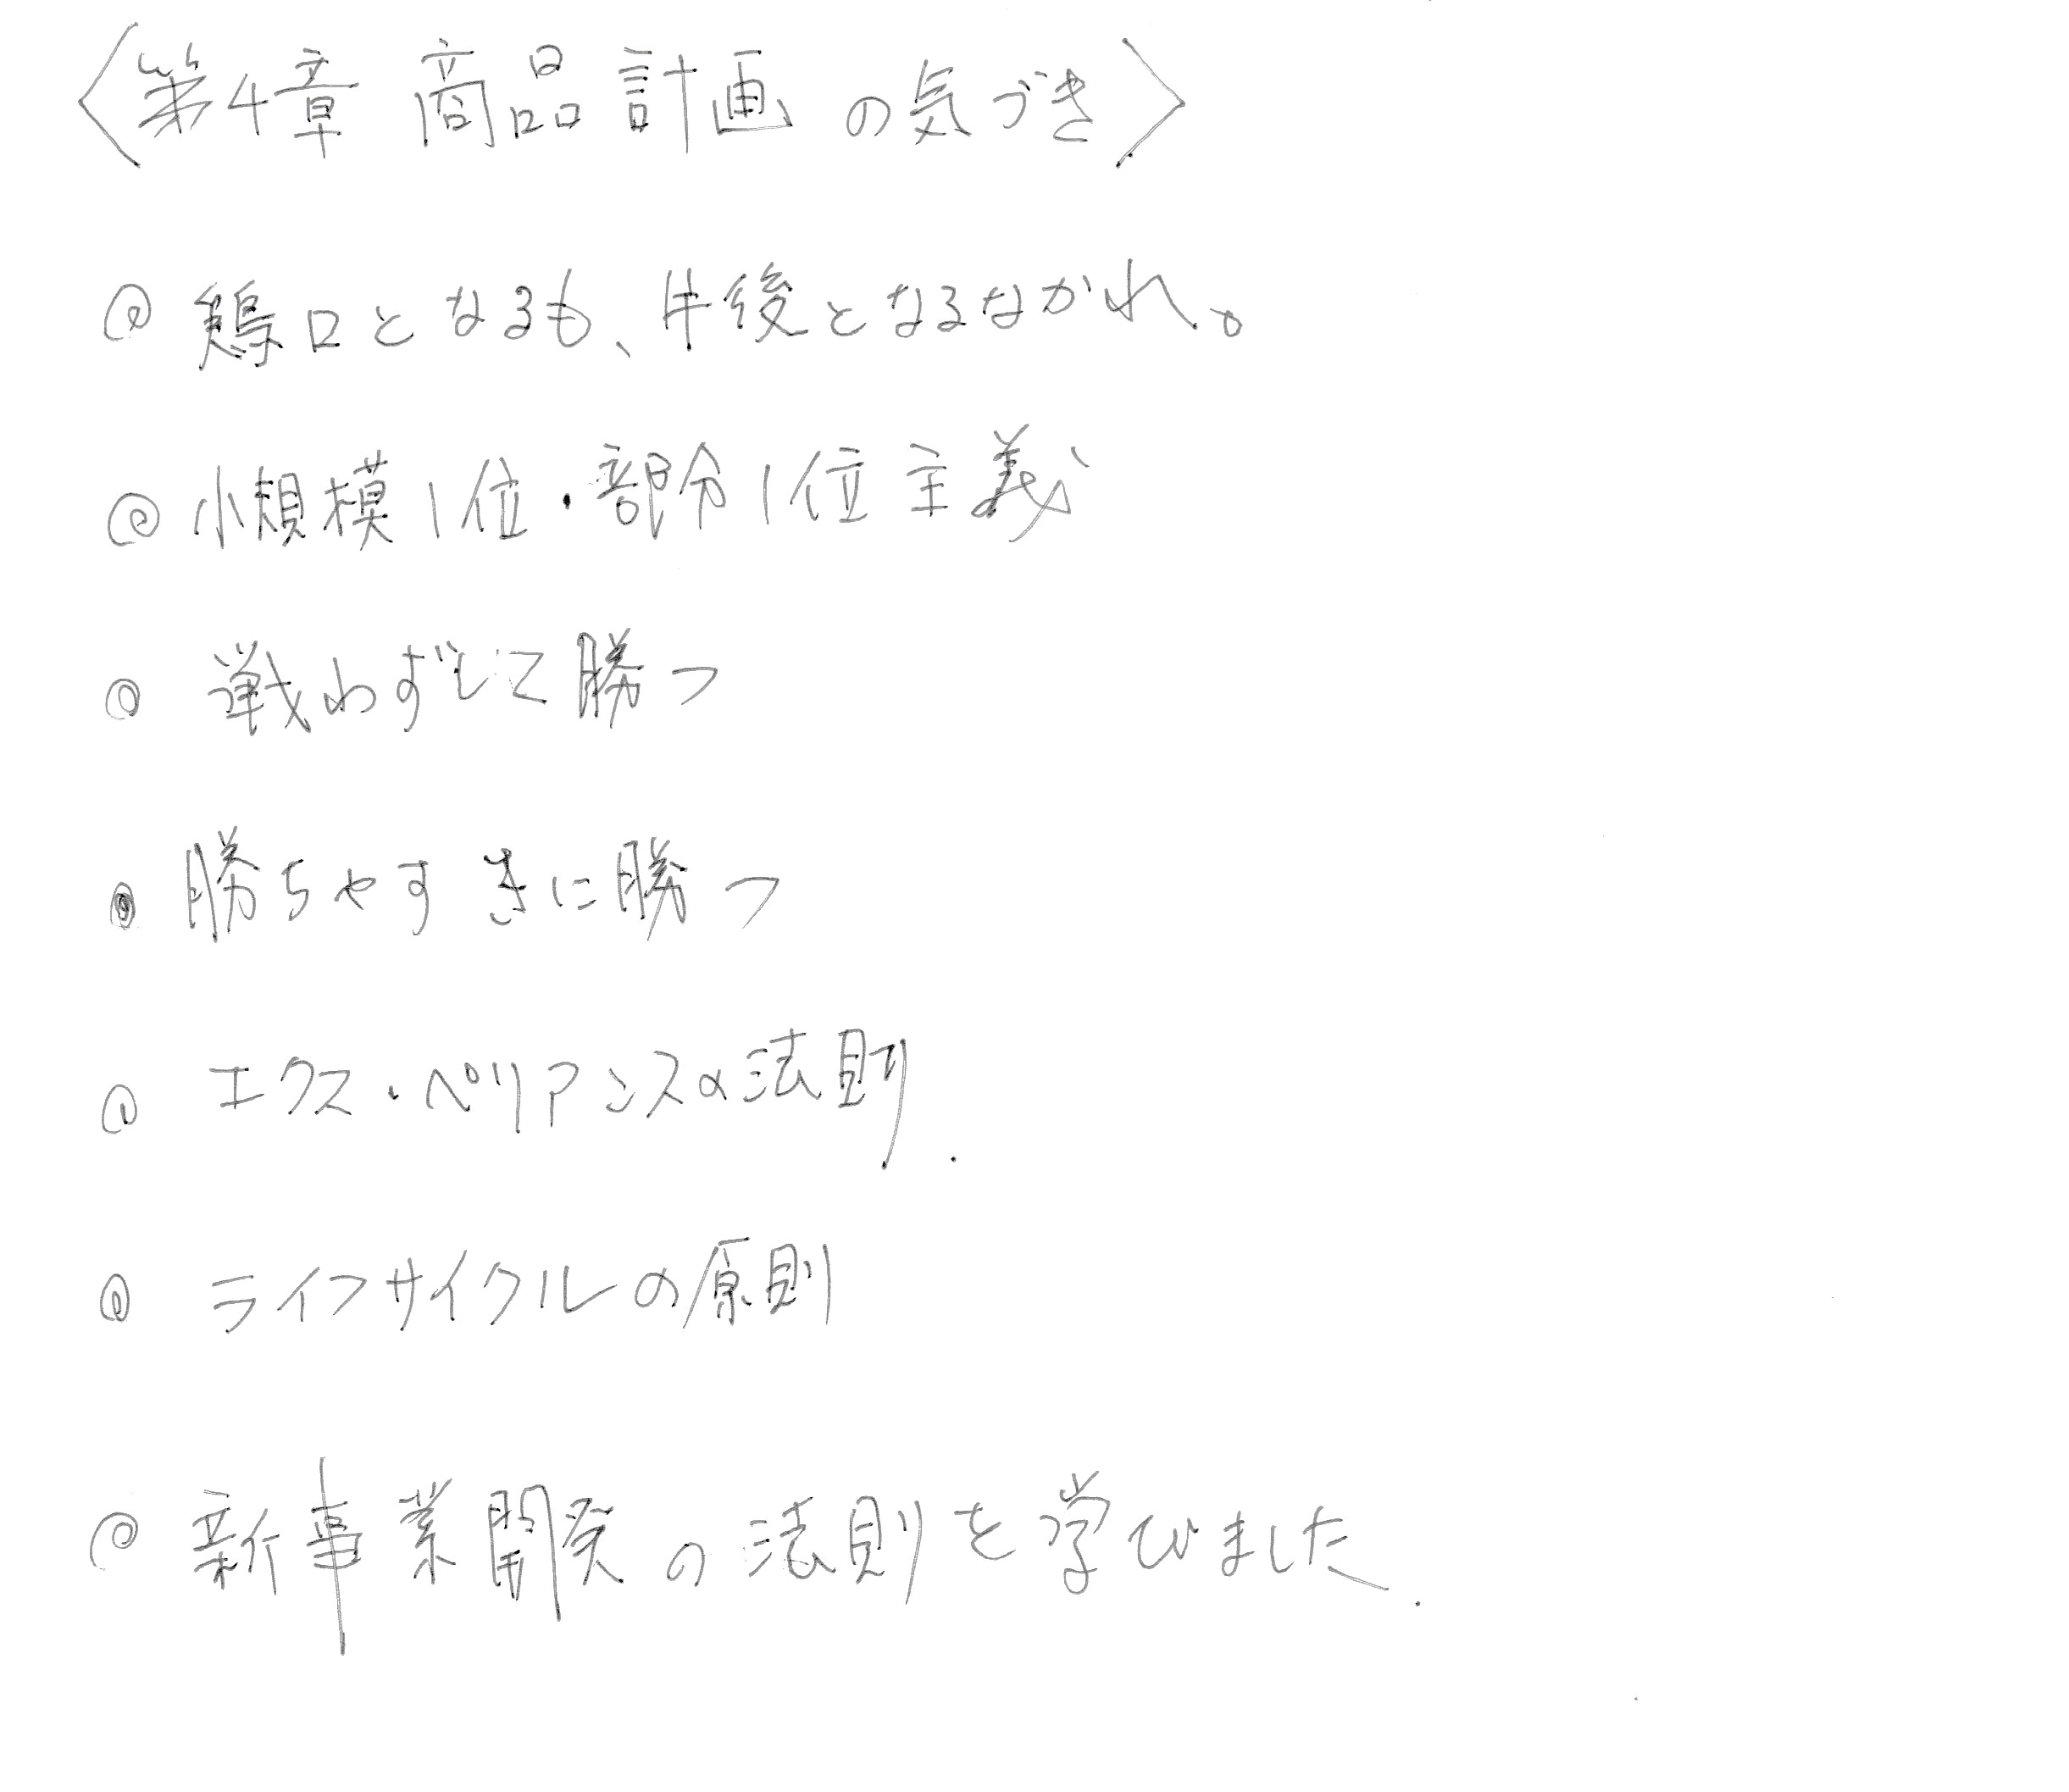 〈第4章 商品計画の気づき〉
◎ 鶏口となるも、牛後となるなかれ。
◎ 小規模1位・部分1位主義
◎ 戦わずして勝つ
◎ 勝ちやすきに勝つ
◎ エクス・ペリアンスの法則.
◎ ライフサイクルの原則
◎ 新事業開発の法則を学びました.